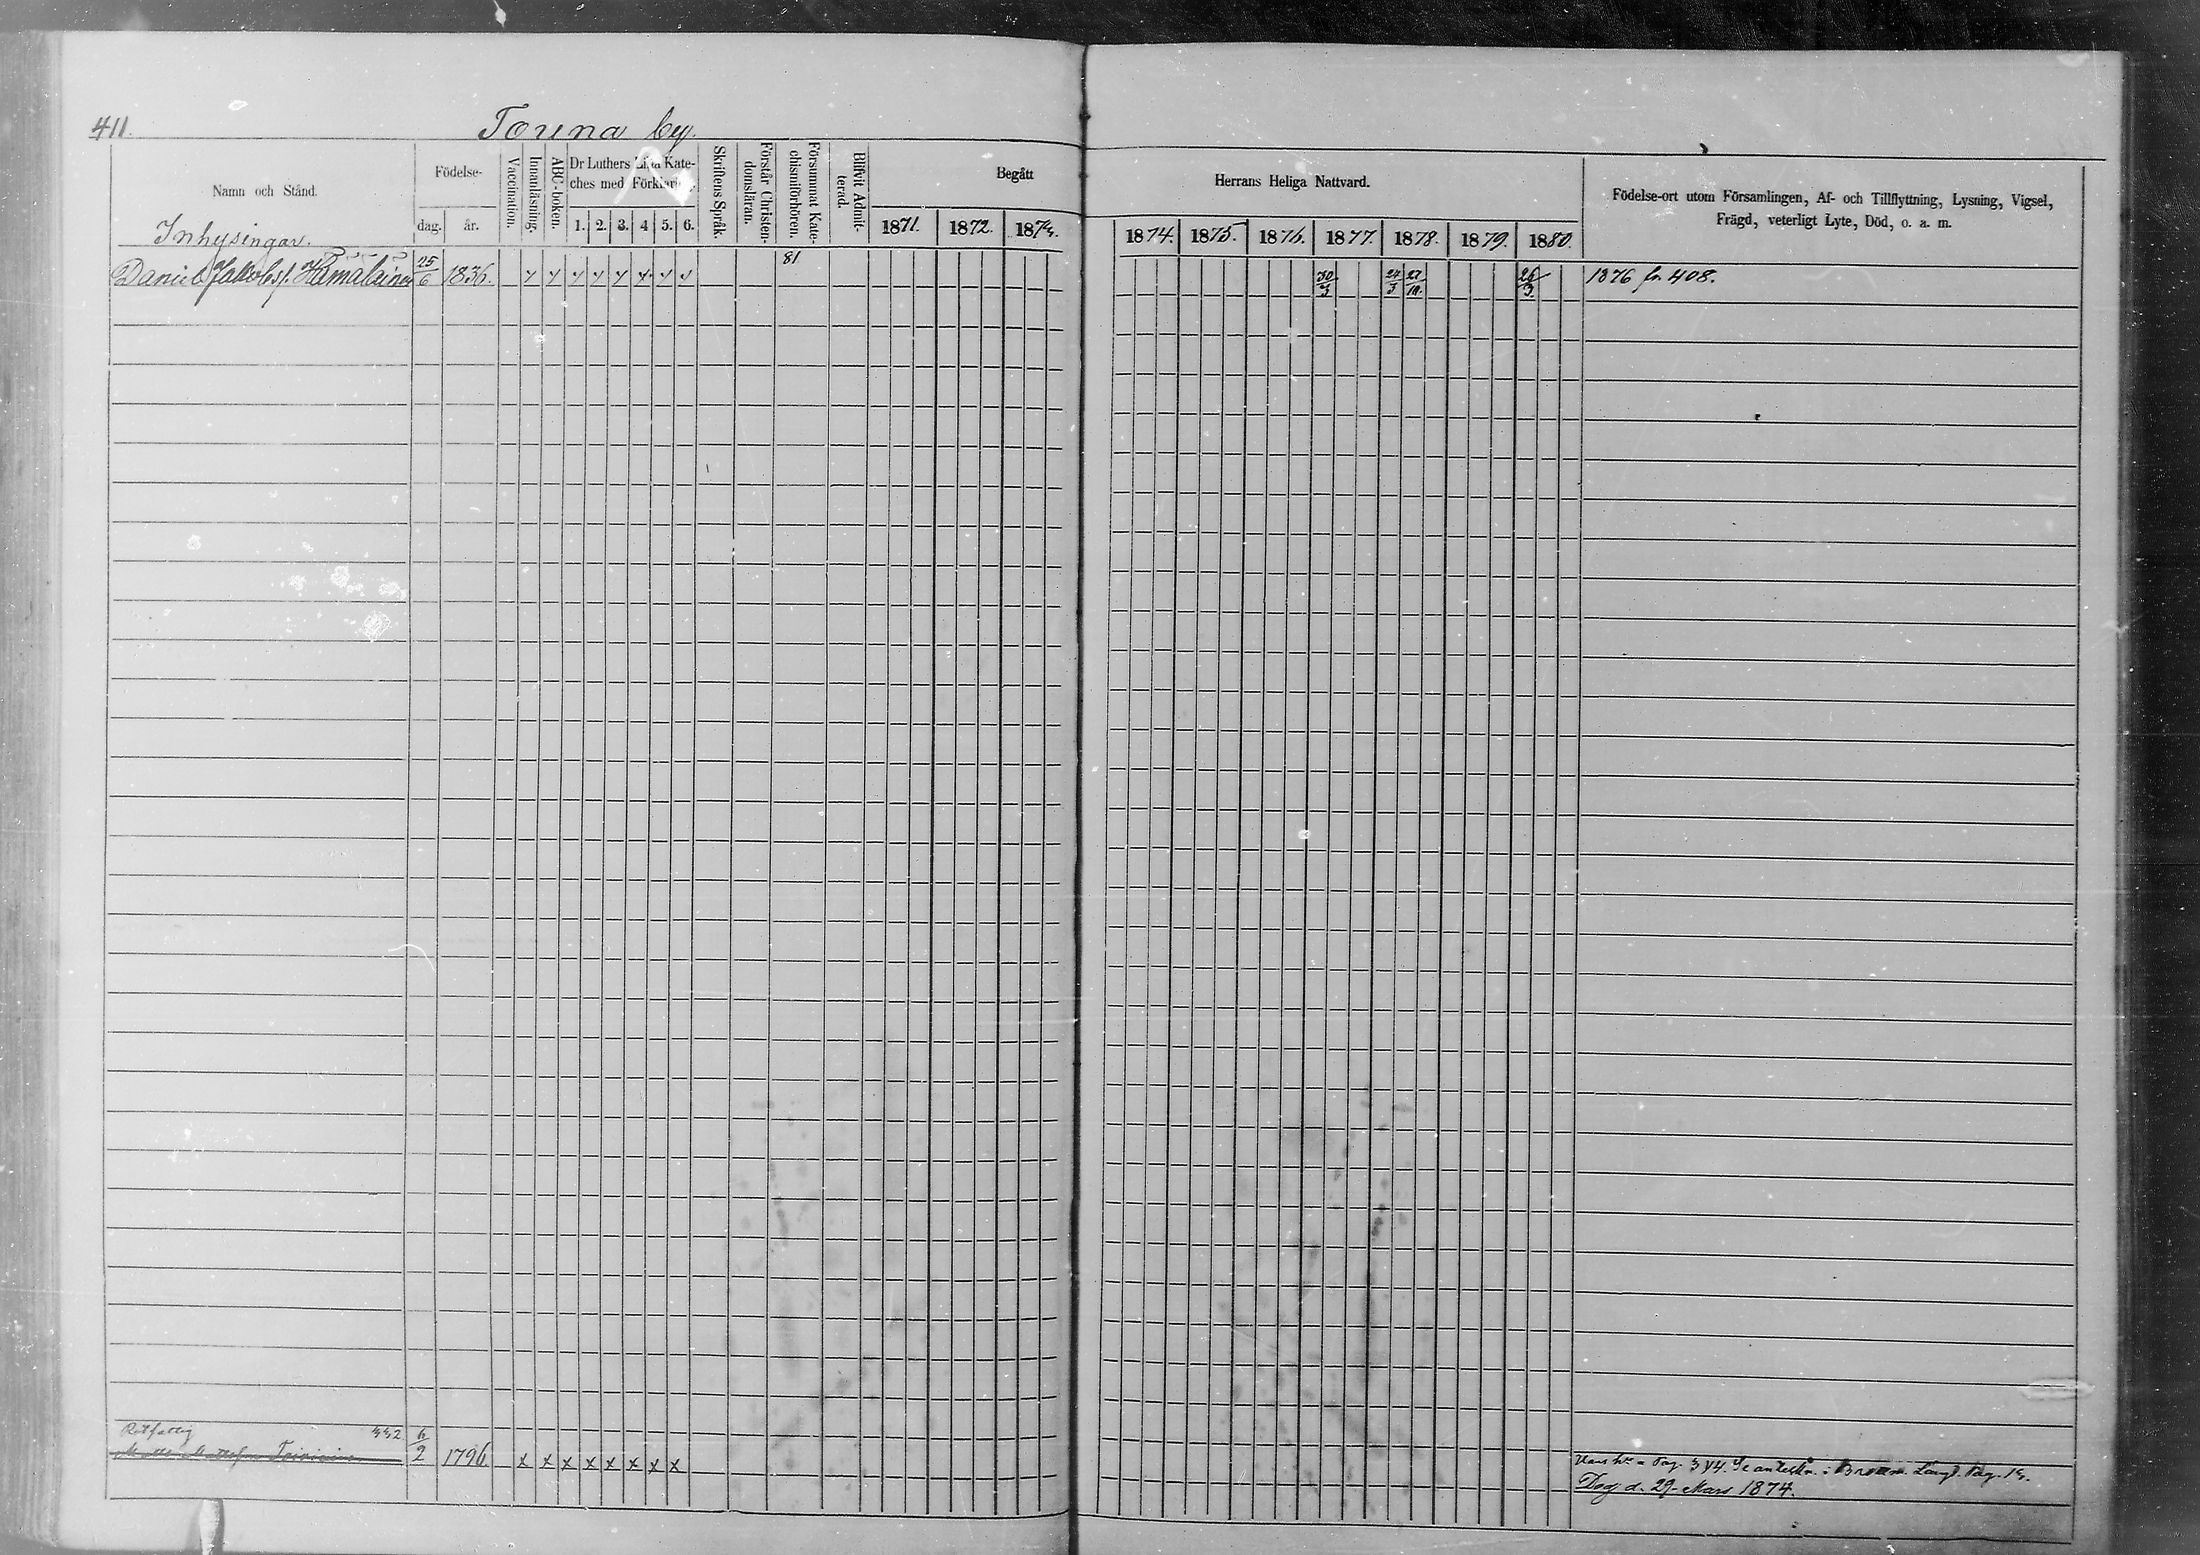 411.
Touna by.
Namn och Stånd.
Födelse-
dag.
år.
Vaccination.
Innanläsning.
ABC-boken.
Dr Luthers Lilla Kate-
ches med Förklaring.
1. 2. 3. 4 5. 6.
Skriftens Språk.
Förstår Christen-
domsläran.
Försummat Kate-
chismiförhören.
Blifvit Admit-
terad.
Begått
1871. 1872. 1873.
Herrans Heliga Nattvard.
1874. 1875. 1876. 1877. 1878. 1879. 1880.
Födelse-ort utom Församlingen, Af- och Tillflyttning, Lysning, Vigsel,
Frägd, veterligt Lyte, Död, o. a. m.
Inhysingar.
Daniel Jakobss. Hämäläinen 25/6 1836. 81 30/3 24/3 27/10. 26/3. 1876 fr. 408.
Rotfattig 6/2 1796. x x x x x x x x
Pag. 344. Se anteckn. i Pag. 13.
Dog d. 29 Mars 1874.